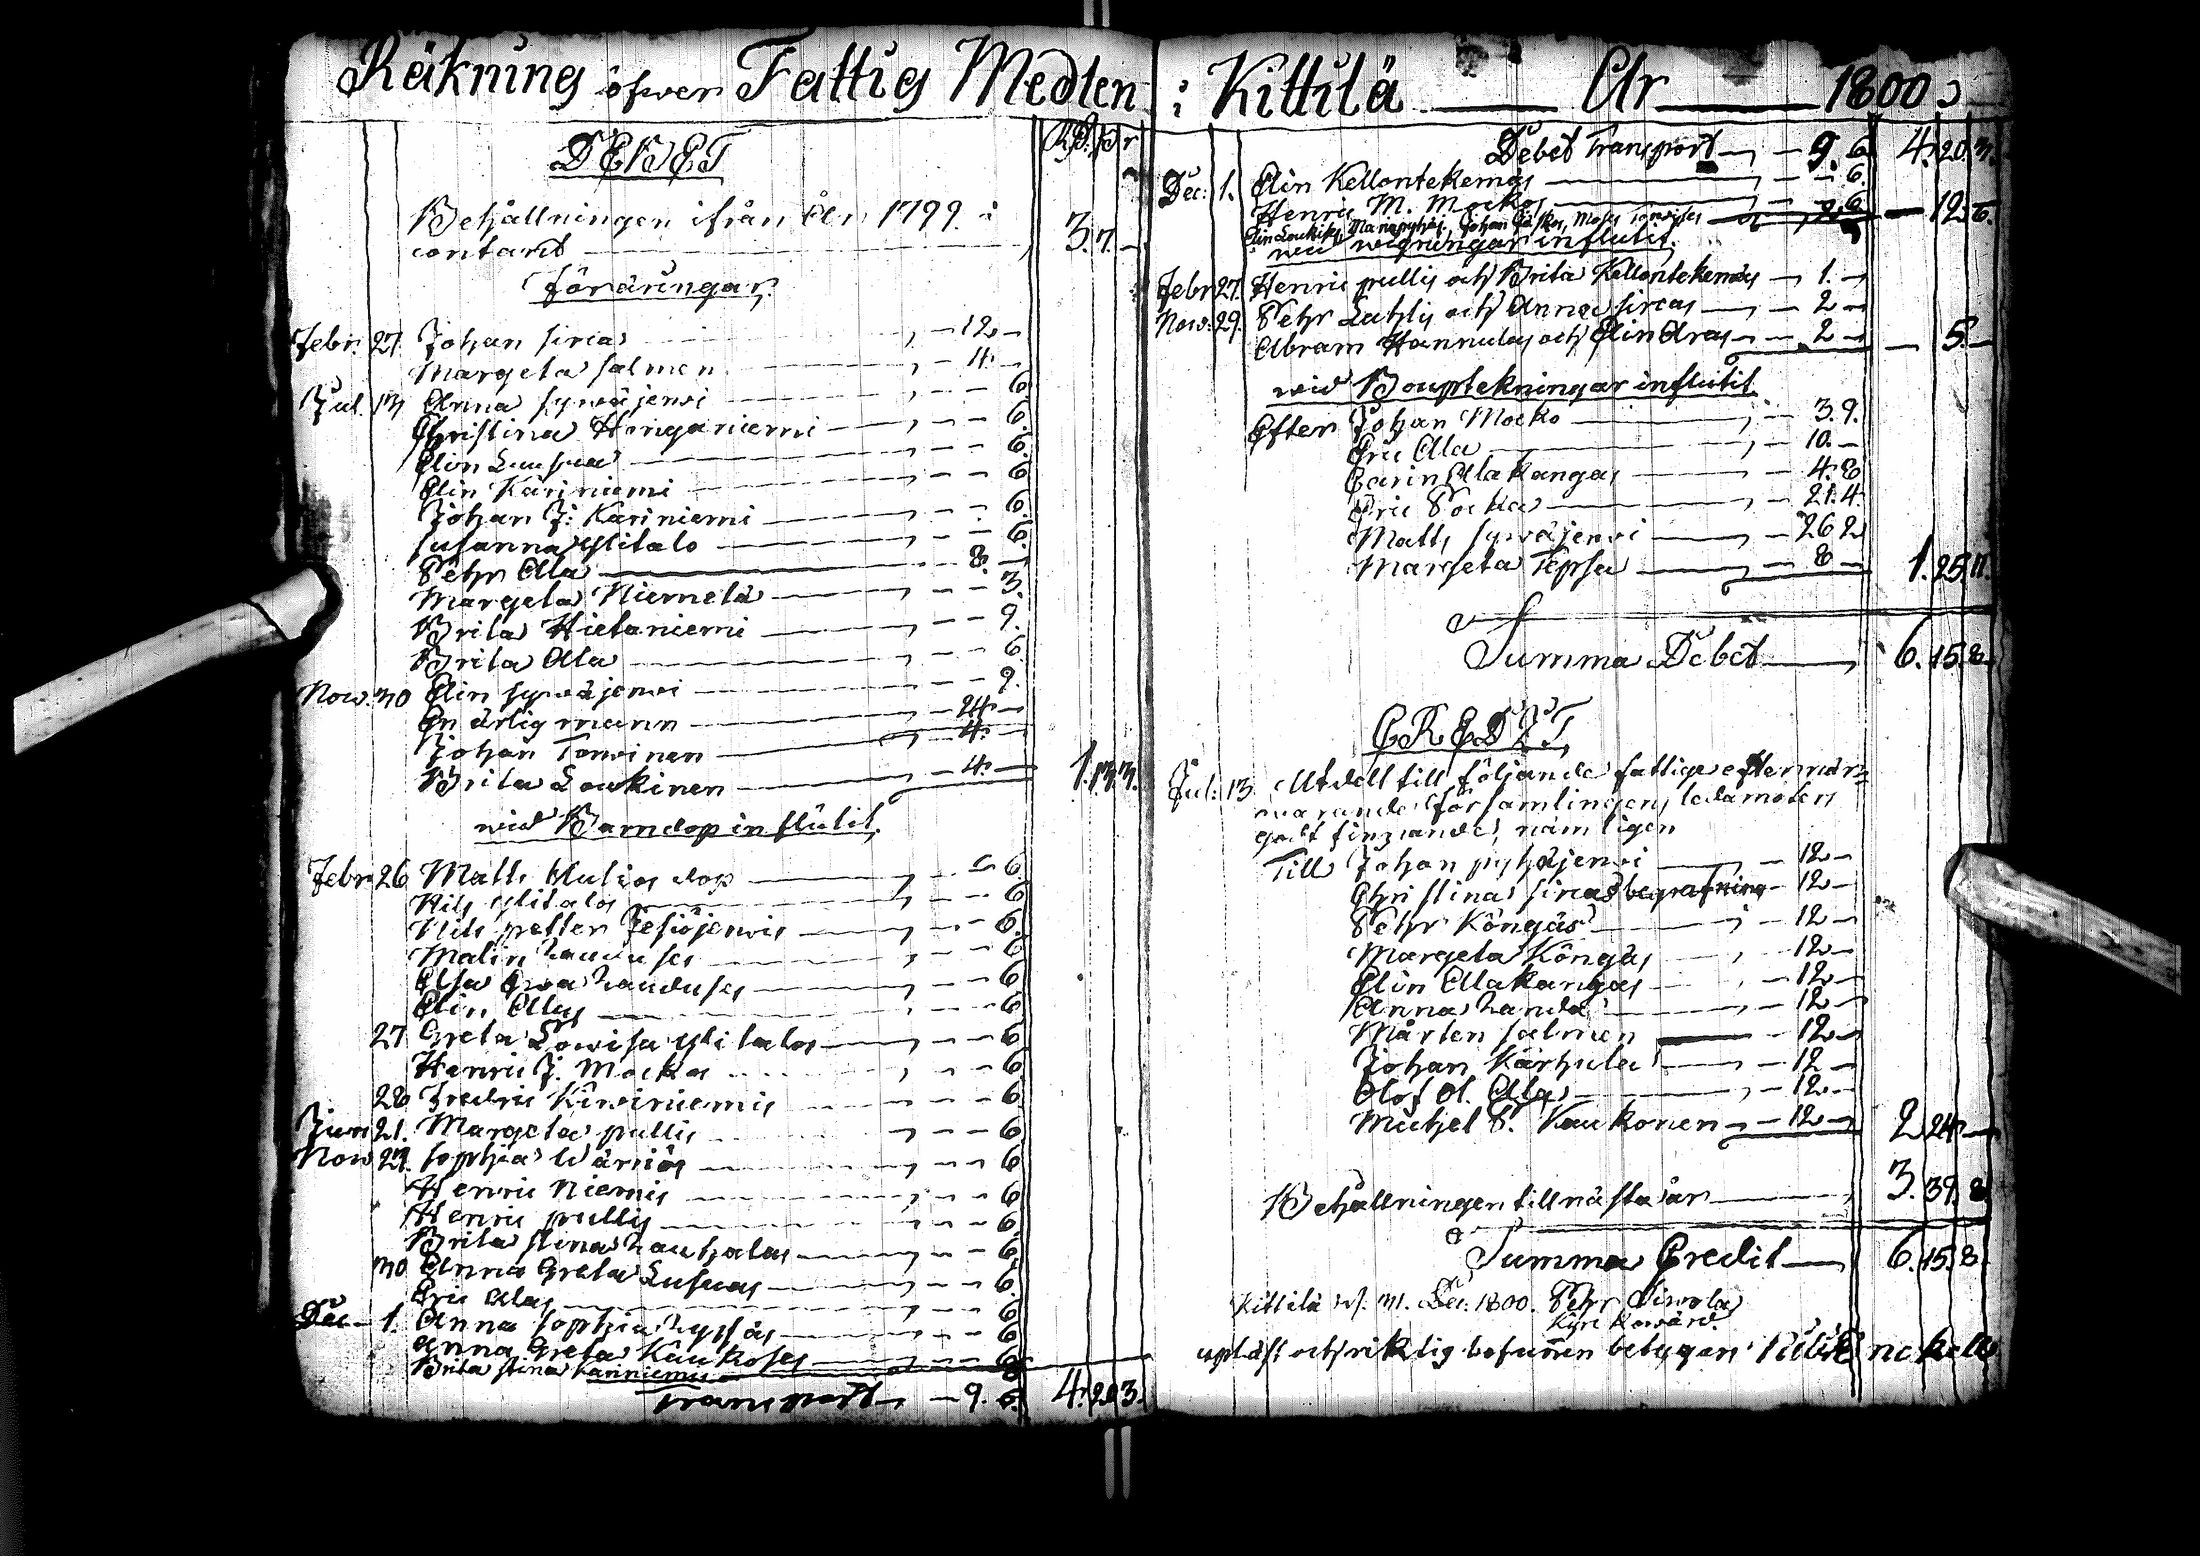 Räkning öfwer Fattig Medlen
DEBET
Behållningen ifrån År 1799 i
contant 3. 7. —
föräringar.
Febr: 27 Johan sirca 12 —
Margeta salmen 4. —
Jul. 13 Anna sywäjerwi 6
Christina Honganiemi 6.
Elin Luusua 6.
Elin Kariniemi 6
Johan J: Kariniemi 6.
susanna ylitalo 6.
Pehr Alla 8. —
Margeta Niemelä 3.
Brita Hietaniemi 9.
Brita Alla 6
Now. 30 Elin sywäjerwi 9.
En ärlig mann 24. —
Johan Torvinen 4. —
Brita Loukinen 4. — 1. 13. 3.
wid Barndop influtit.
Febr 26 Matts dop 6
Nils ylitalos 6
Nils petter Jesiöjerwis 6.
Malin 6
Elsa 6
Elin Allas 6
27 Greta Lowisa ylitalos 6
Henric J. Mockos 6
28 Fredric Kiwiniemis 6
Jun 21. Margeta pullis 6
Now 29. sophia Wäriös 6
Henric Niemis 6
Henric pullis 6
Brita stina 6
30 Anna Greta Lusuas 6.
Eric Alas 6
Dec. 1. Anna sophia 6
Anna Greta Kaukoses 6
Brita stina Kariniemis 6
Transport 9. 6. 4. 20 3.
i Kittilä År 1800
Debet Transport 9. 6 4. 20. 3.
Dec. 1. Elin Kellontekemäs 6.
Henric M. Mockos 6 — 12. 6.
wid wigningar influtit.
Febr 27. Henric pullis och Brita Kellontekemäs 1. —
Now. 29. Pehr Lahtis och Anna sircas 2 —
Abram Hannulas och Elin Aras 2 — — 5. —
wid Bouptekningar influtit
Efter Johan Mocko 3. 9.
Eric Alla 10. —
Carin Alakangas 4. 8
Eric Pocka 21. 4.
Matts sywäjerwi 26 2
Margeta Tepsa 8 — 1. 25. 11.
Summa Debet 6. 15. 8.
CREDIT
Jul: 13. Utdelt till följande fattige efter när-
warande församlingens ledamoters
godt finnande, nämligen
Till Johan pyhäjerwi 12 —
Christina sircas begrafning 12 —
Pehr Köngäs 12 —
Margeta Köngäs 12 —
Elin Allakangas 12 —
Anna 12 —
Mårten salmen 12 —
Johan Kärhula 12 —
Olof Ol. Alla 12 —
Michel P. Kaukonen 12 — 2 24. —
Behållningen till nästa år 3. 39. 8
Summa Credit 6. 15. 8.
Kittilä d. 31. Dec: 1800. Pehr Siwola
Kyrc Kowärd.
upläst och riktig befunnen betygar